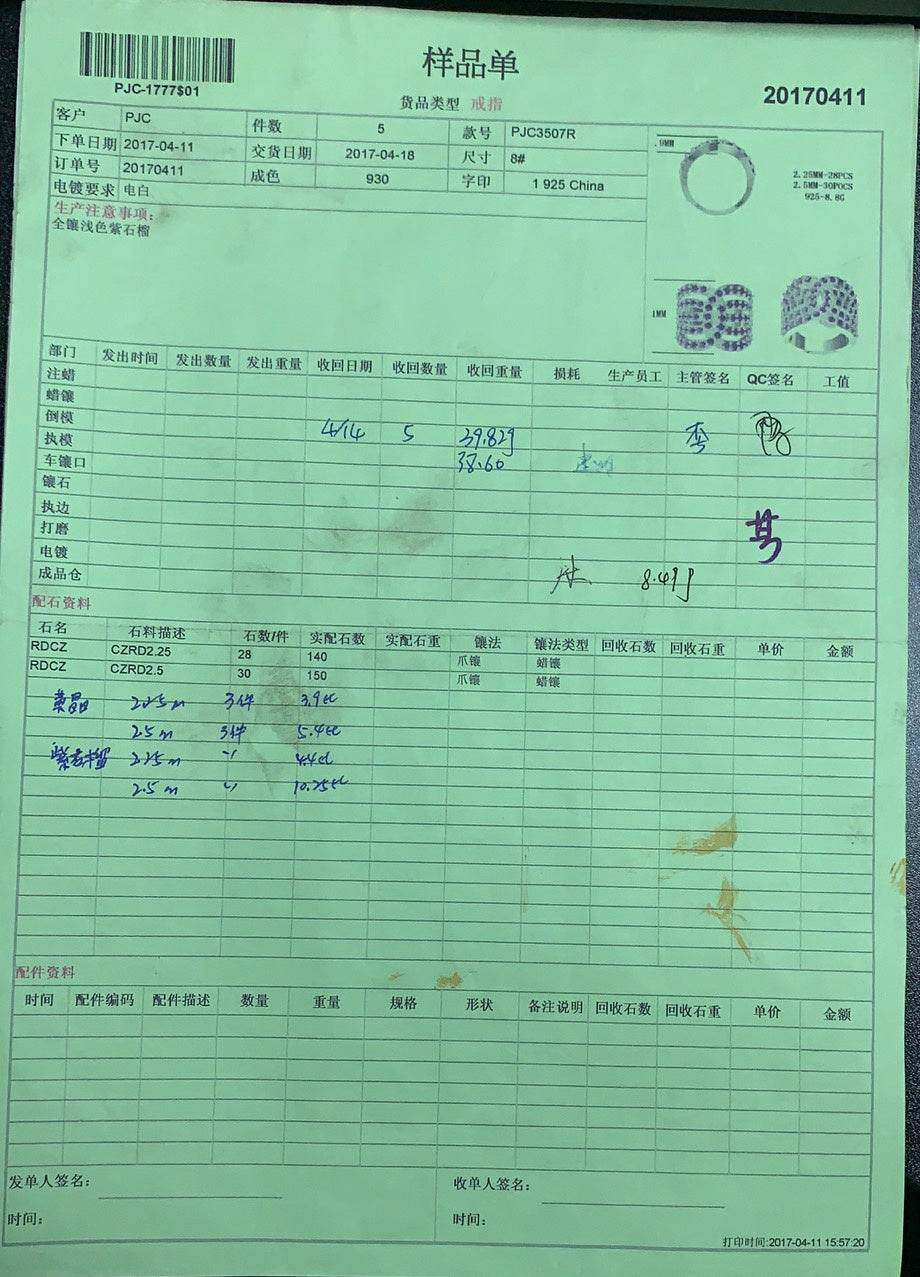 样品单
PJC-1777$01
货品类型 戒指
20170411
客户 PJC 件数 5 款号 PJC3507R
下单日期 2017-04-11 交货日期 2017-04-18 尺寸 8#
订单号 20170411 成色 930 字印 1 925 China
电镀要求 电白
生产注意事项:
全镶浅色紫石榴
.9MM
2.25MM-28PCS
2.5MM-30POCS
925-8.8G
1MM
部门 发出时间 发出数量 发出重量 收回日期 收回数量 收回重量 损耗 生产员工 主管签名 QC签名 工值
注蜡
蜡镶
倒模 4/14 5 39.82g
执模 38.60
车镶口
镶石
执边
打磨
电镀
成品仓 8.49g
配石资料
石名 石料描述 石数/件 实配石数 实配石重 镶法 镶法类型 回收石数 回收石重 单价 金额
RDCZ CZRD2.25 28 140 爪镶 蜡镶
RDCZ CZRD2.5 30 150 爪镶 蜡镶
2.25m 3件 3.9ct
2.5m 3件 5.4ct
紫石榴 2.25m 4.4ct
2.5m 10.25ct
配件资料
时间 配件编码 配件描述 数量 重量 规格 形状 备注说明 回收石数 回收石重 单价 金额
发单人签名: 收单人签名:
时间: 时间:
打印时间:2017-04-11 15:57:20